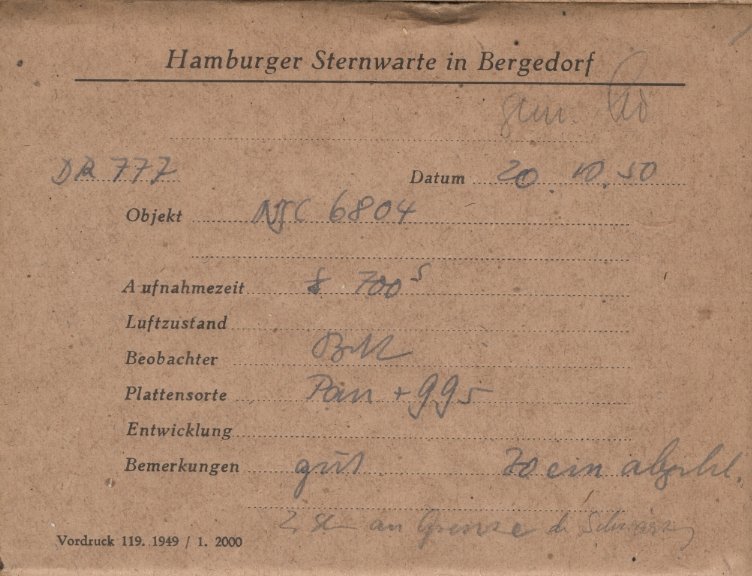 Hamburger Sternwarte in Bergedorf
gem.
DR 777 Datum 20. 10. 50
Objekt NGC 6804
Aufnahmezeit 700 s
Luftzustand
Beobachter
Plattensorte Pan + 995
Entwicklung
Bemerkungen gut 70 cm abgebl.
an Grenze d.
Vordruck 119. 1949 / 1. 2000